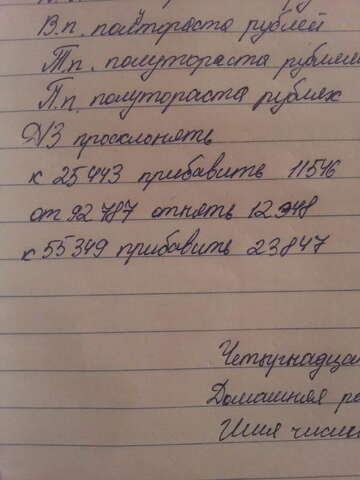 В.п. полтораста рублей
Т.п. полутораста рублям
П.п. полутораста рублях
Д/З просклонять
к 25443 прибавить 11546
от 92787 отнять 12948
к 55349 прибавить 23847
Четырнадцат
Домашняя ра
Имя числи